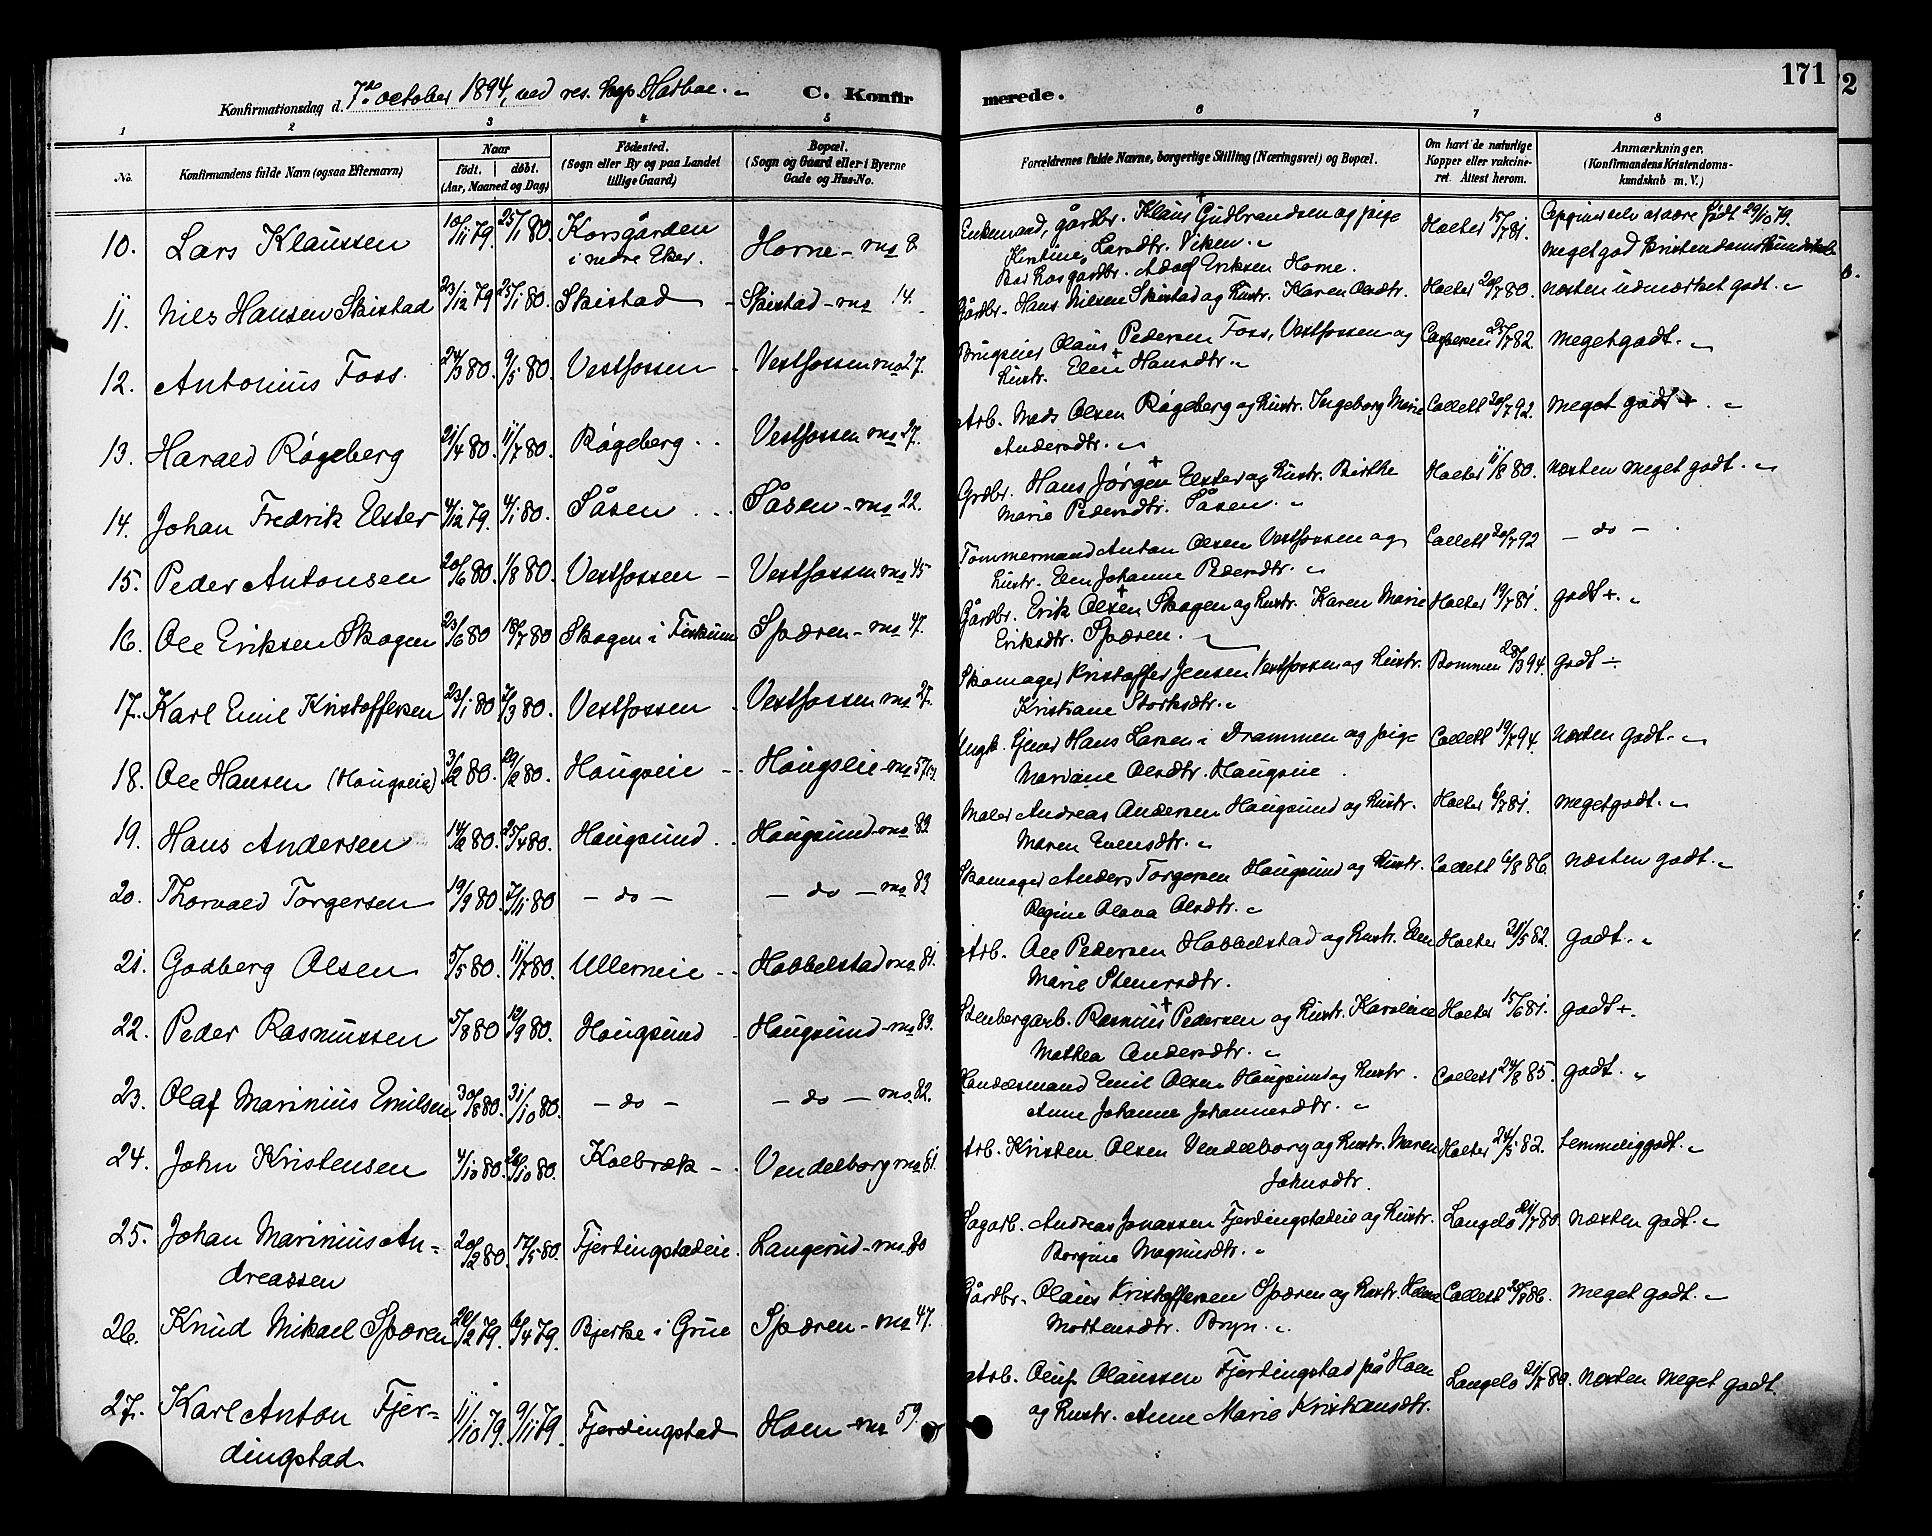 171
2
Konfirmationsdag d. 7de october 1894, ved res. kap. Hatboe.
C. Konfir merede.
1 2 3 4 5 6 7 8
No.
Konfirmandens fulde Navn (ogsaa Efternavn)
Naar
født. døbt.
(Aar, Maaned og Dag)
Fødested.
(Sogn eller By og paa Landet
tillige Gaard)
Bopæl.
(Sogn og Gaard eller i Byerne
Gade og Hus-No.
Forældrenes fulde Navne, borgerlige Stilling (Næringsvei) og Bopæl.
Om havt de naturlige
Kopper eller vaccine-
ret. Attest herom.
Anmærkninger.
(Konfirmandens Kristendoms-
kundskab m. V.)
10. Lars Klaussen 10/11 79. 25/1 80. Korsgården i nedre Eker. Horne - ms 8. Enkemand, gårdbr. Klaus Gudbrandsen og pige
Kirstine Larsdtr. Viken.
Bor hos gårdbr. Adolf Eriksen Horne. Holter 15/7 81. Opgives selv at være født 29/10 79.
Meget god Kristendomskundskab
11. Nils Hansen Skistad 23/12 79 25/1 80. Skistad - Skistad - ms 14. Gårdbr. Hans Nilsen Skistad og hustr. Karen Olsdtr. Holter 20/7 80. næsten udmærket godt.
12. Antonius Foss. 24/3 80. 9/5 80. Vestfossen - Vestfossen ms 27. Brugseier Olaus Pedersen Foss, Vestfossen og
hustr. Elen Hansdtr. Caspersen 25/7 82. Meget godt.
13. Harald Røgeberg 21/4 80. 11/7 80. Røgeberg . . Vestfossen ms 27. Arb. Mads Olsen Røgeberg og hustr. Ingeborg Marie
Andersdtr. Collett 20/7 92. Meget godt +.
14. Johan Fredrik Elster 4/12 79. 4/1 80. Såsen . . Såsen - ms 22. Grdbr. Hans Jørgen Elster og hustr. Birthe
Marie Pedersdtr. Såsen. Holter 11/8 80. næsten meget godt.
15. Peder Antonsen 20/6 80. 1/8 80. Vestfossen - Vestfossen ms 45 Tømmermand Anton Olsen Vestfossen og
hustr. Elen Johanne Pedersdtr. Collett 20/7 92 - do -
16. Ole Eriksen Skogen 23/6 80 18/7 80 Skogen i Fiskum Spæren - ms 47. Gårdbr. Erik Olsen Skogen og hustr. Karen Marie
Eriksdtr. Spæren. Holter 19/7 81. godt +.
17. Karl Emil Kristoffersen 23/1 80 7/3 80. Vestfossen - Vestfossen ms 27. Skomager Kristoffer Jensen Vestfossen og hustr.
Kristiane Storksdtr. Bommen 28/3 94. godt ÷.
18. Ole Hansen (Hougseie) 3/2 80. 29/2 80. Hougseie - . Hougseie - ms 57 Ungk. tjener Hans Larsen i Drammen og pige
Mariane Olsdtr. Hougseie. Collett 19/7 94. Næsten godt.
19. Hans Andersen 14/2 80. 25/4 80. Hougsund . . Hougsund - ms 83 Maler Andreas Andersen Hougsund og hustr.
Maren Evensdtr. Holter 6/7 81. meget godt.
20. Thorvald Torgersen 19/9 80. 7/11 80 - do - - do - ms 83 Skomager Anders Torgersen Hougsund og hustr.
Regine Olava Olsdtr. Collett 6/8 86. næsten godt.
21. Godberg Olsen 5/5 80. 11/7 80. Ullerneie - . Hobbelstad ms 81. Arb. Ole Pedersen Hobbelstad og hustr. Elen
Marie Stenersdtr. Holter 21/5 82. godt.
22. Peder Rasmussen 5/8 80 19/9 80. Hougsund . Hougsund - ms 83. Stenbergarb. Rasmus Pedersen og hustr. Karoline
Mathea Andersdtr. Holter 15/6 81. godt +.
23. Olaf Marinius Emilsen 30/8 80. 31/10 80. - do - - do - ms 82. Handelsmand Emil Olsen Hougsund og hustr.
Anne Johanne Johannesdtr. Collett 24/8 85. godt.
24. John Kristensen 4/10 80. 26/10 80. Kolbræk - . Vendelborg ms 81. Arb. Kristen Olsen Vendelborg og hustr. Maren
Johnsdtr. Holter 24/5 82. temmelig godt.
25. Johan Marinius An-
dreassen 20/2 80. 17/5 80. Fjerdingstadeie. Langerud - ms 80 Sagarb. Andreas Jonassen Fjerdingstadeie og hustr.
Borgine Magnusdtr. Langelo 21/7 80. næsten godt.
26. Knud Mikael Spæren 20/2 79. 6/4 79. Bjerke i Grue Spæren - ms 47. Gårdbr. Olaus Kristoffersen Spæren og hustr.
Mortensdtr. Bryn. Collett 20/8 86. meget godt.
27. Karl Anton Fjer-
dingstad. 11/10 79. 9/11 79. Fjerdingstad Hoen - ms 59. Arb. Oluf Olaussen Fjerdingstad på Hoen
og hustr. Anne Marie Kristiansdtr. Langelo 21/7 80. næsten meget godt.